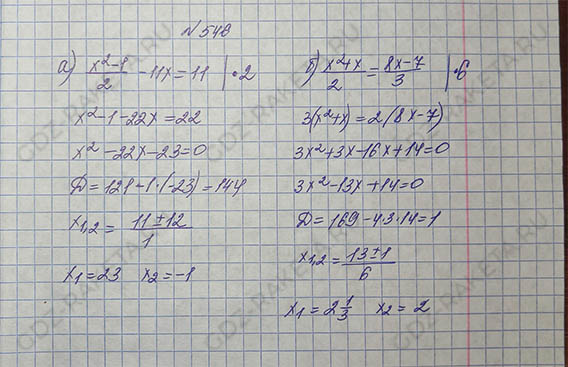 № 548
а) (x²-1)/2 - 11x = 11 | ·2
x²-1-22x=22
x²-22x-23=0
D=121-1·(-23)=144
x₁,₂ = (11±12)/1
x₁=23 x₂=-1
б) (x²+x)/2 = (8x-7)/3 | ·6
3(x²+x)=2(8x-7)
3x²+3x-16x+14=0
3x²-13x+14=0
D=169-4·3·14=1
x₁,₂ = (13±1)/6
x₁=2 1/3 x₂=2
GDZ-RAKETA.RU